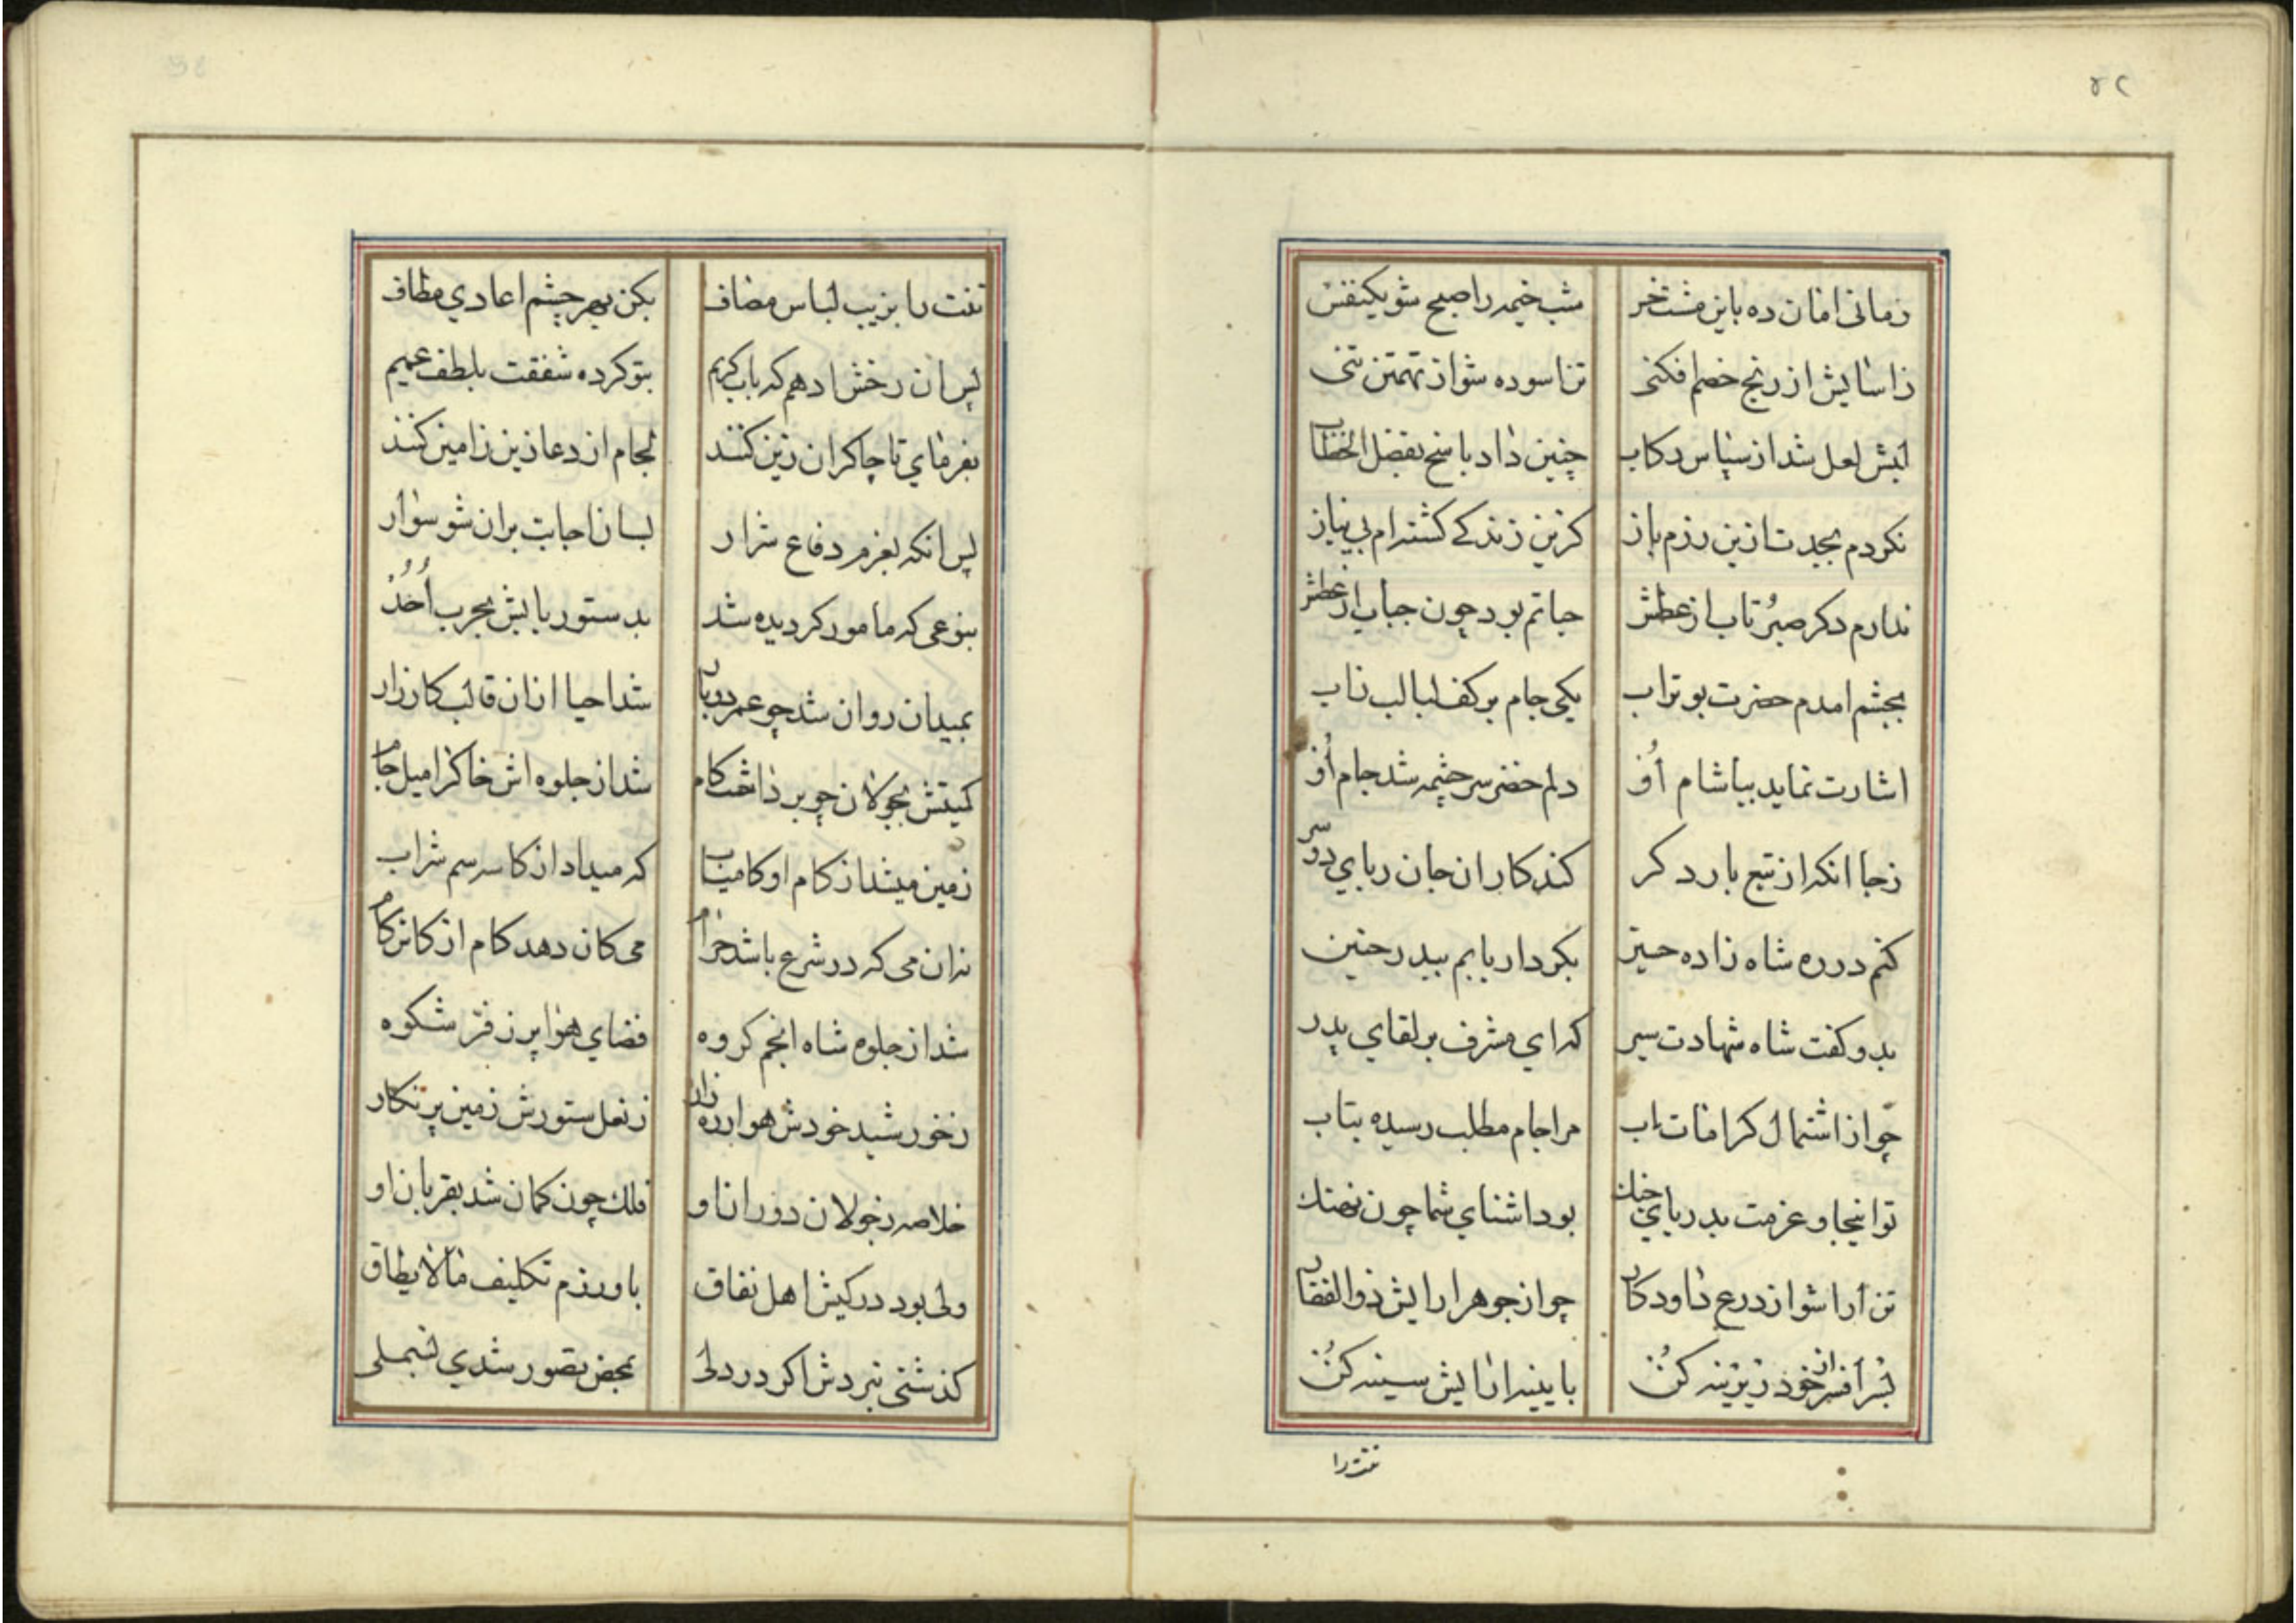 ۴۲
زمانی امان ده باین مشت خر شب خیمه را صبح شو یکنفس
زاسایش از رنج خصم افکنی تن اسوده شو از تهمتن تنی
لبش لعل شد از سپاس رکاب چنین داد پاسخ بفضل الخطاب
نکردم بجدت ازین رزم باز کزین زندکی کشته‌ام بی نیاز
ندارم دکر صبر تاب از عطش حیاتم بود چون حباب از عطش
بچشم امدم حضرت بو تراب یکی جام بر کف لبالب ز اب
اشارت نماید بیاشام اوُ دلم خضر سرچشمه شد جام اوُ
زجا انکه از تیغ بارد کر کند کار ان جان ربای دو سر
کنم در ره شاه زاده حسین بکردار بابم ببدر حنین
بدو کفت شاه شهادت سیر که ای مشرف بر لقای پدر
چو از اشتمال کرامات باب مرا جام مطلب رسیده بتاب
تو اینجا و عزمت بدریای جنك بود اشنای شما چون نهنك
تن ارا شو از درع داود کار چو از جوهر ارایش ذوالفقار
بسر افسر از خود زرینه کن بایینه ارایش سینه کن
تنت را
تنت را بزیب لباس مضاف بکن بهر چشم اعادی مطاف
پس ان رخش ادهم که باب کریم بتو کرده شفقت بلطف عمیم
بفرمای تا چاکران زین کنند لجام از دعا زین ز امین کنند
پس انکه بعزم دفاع شرار بسان اجابت بران شو سوار
بنوعی که مامور کردیده شد بدستور بابش بحرب اُحُد
بمیدان روان شد چو عمر دوبار شد احیا ازان قالب کارزار
کمیتش بجولان چو برداشت کام شد از جلوه اش خاک را میل جام
زمین میشد از کام او کامیاب که میداد از کاسه سم شراب
نه ان می که در شرع باشد حرام می کان دهد کام از کان کام
شد از جلوه شاه انجم کروه فضای هوا پر ز فر شکوه
زخورشید خودش هوا زره زار ز نعل ستورش زمین پر نکار
خلاصه ز جولان دوران او فلك چون کمان شد بقربان او
ولی بود در کیش اهل نفاق باو رزم تکلیف مالایطاق
کذشتی نبردش اکر در دلی بمحض تصور شدی بسملی